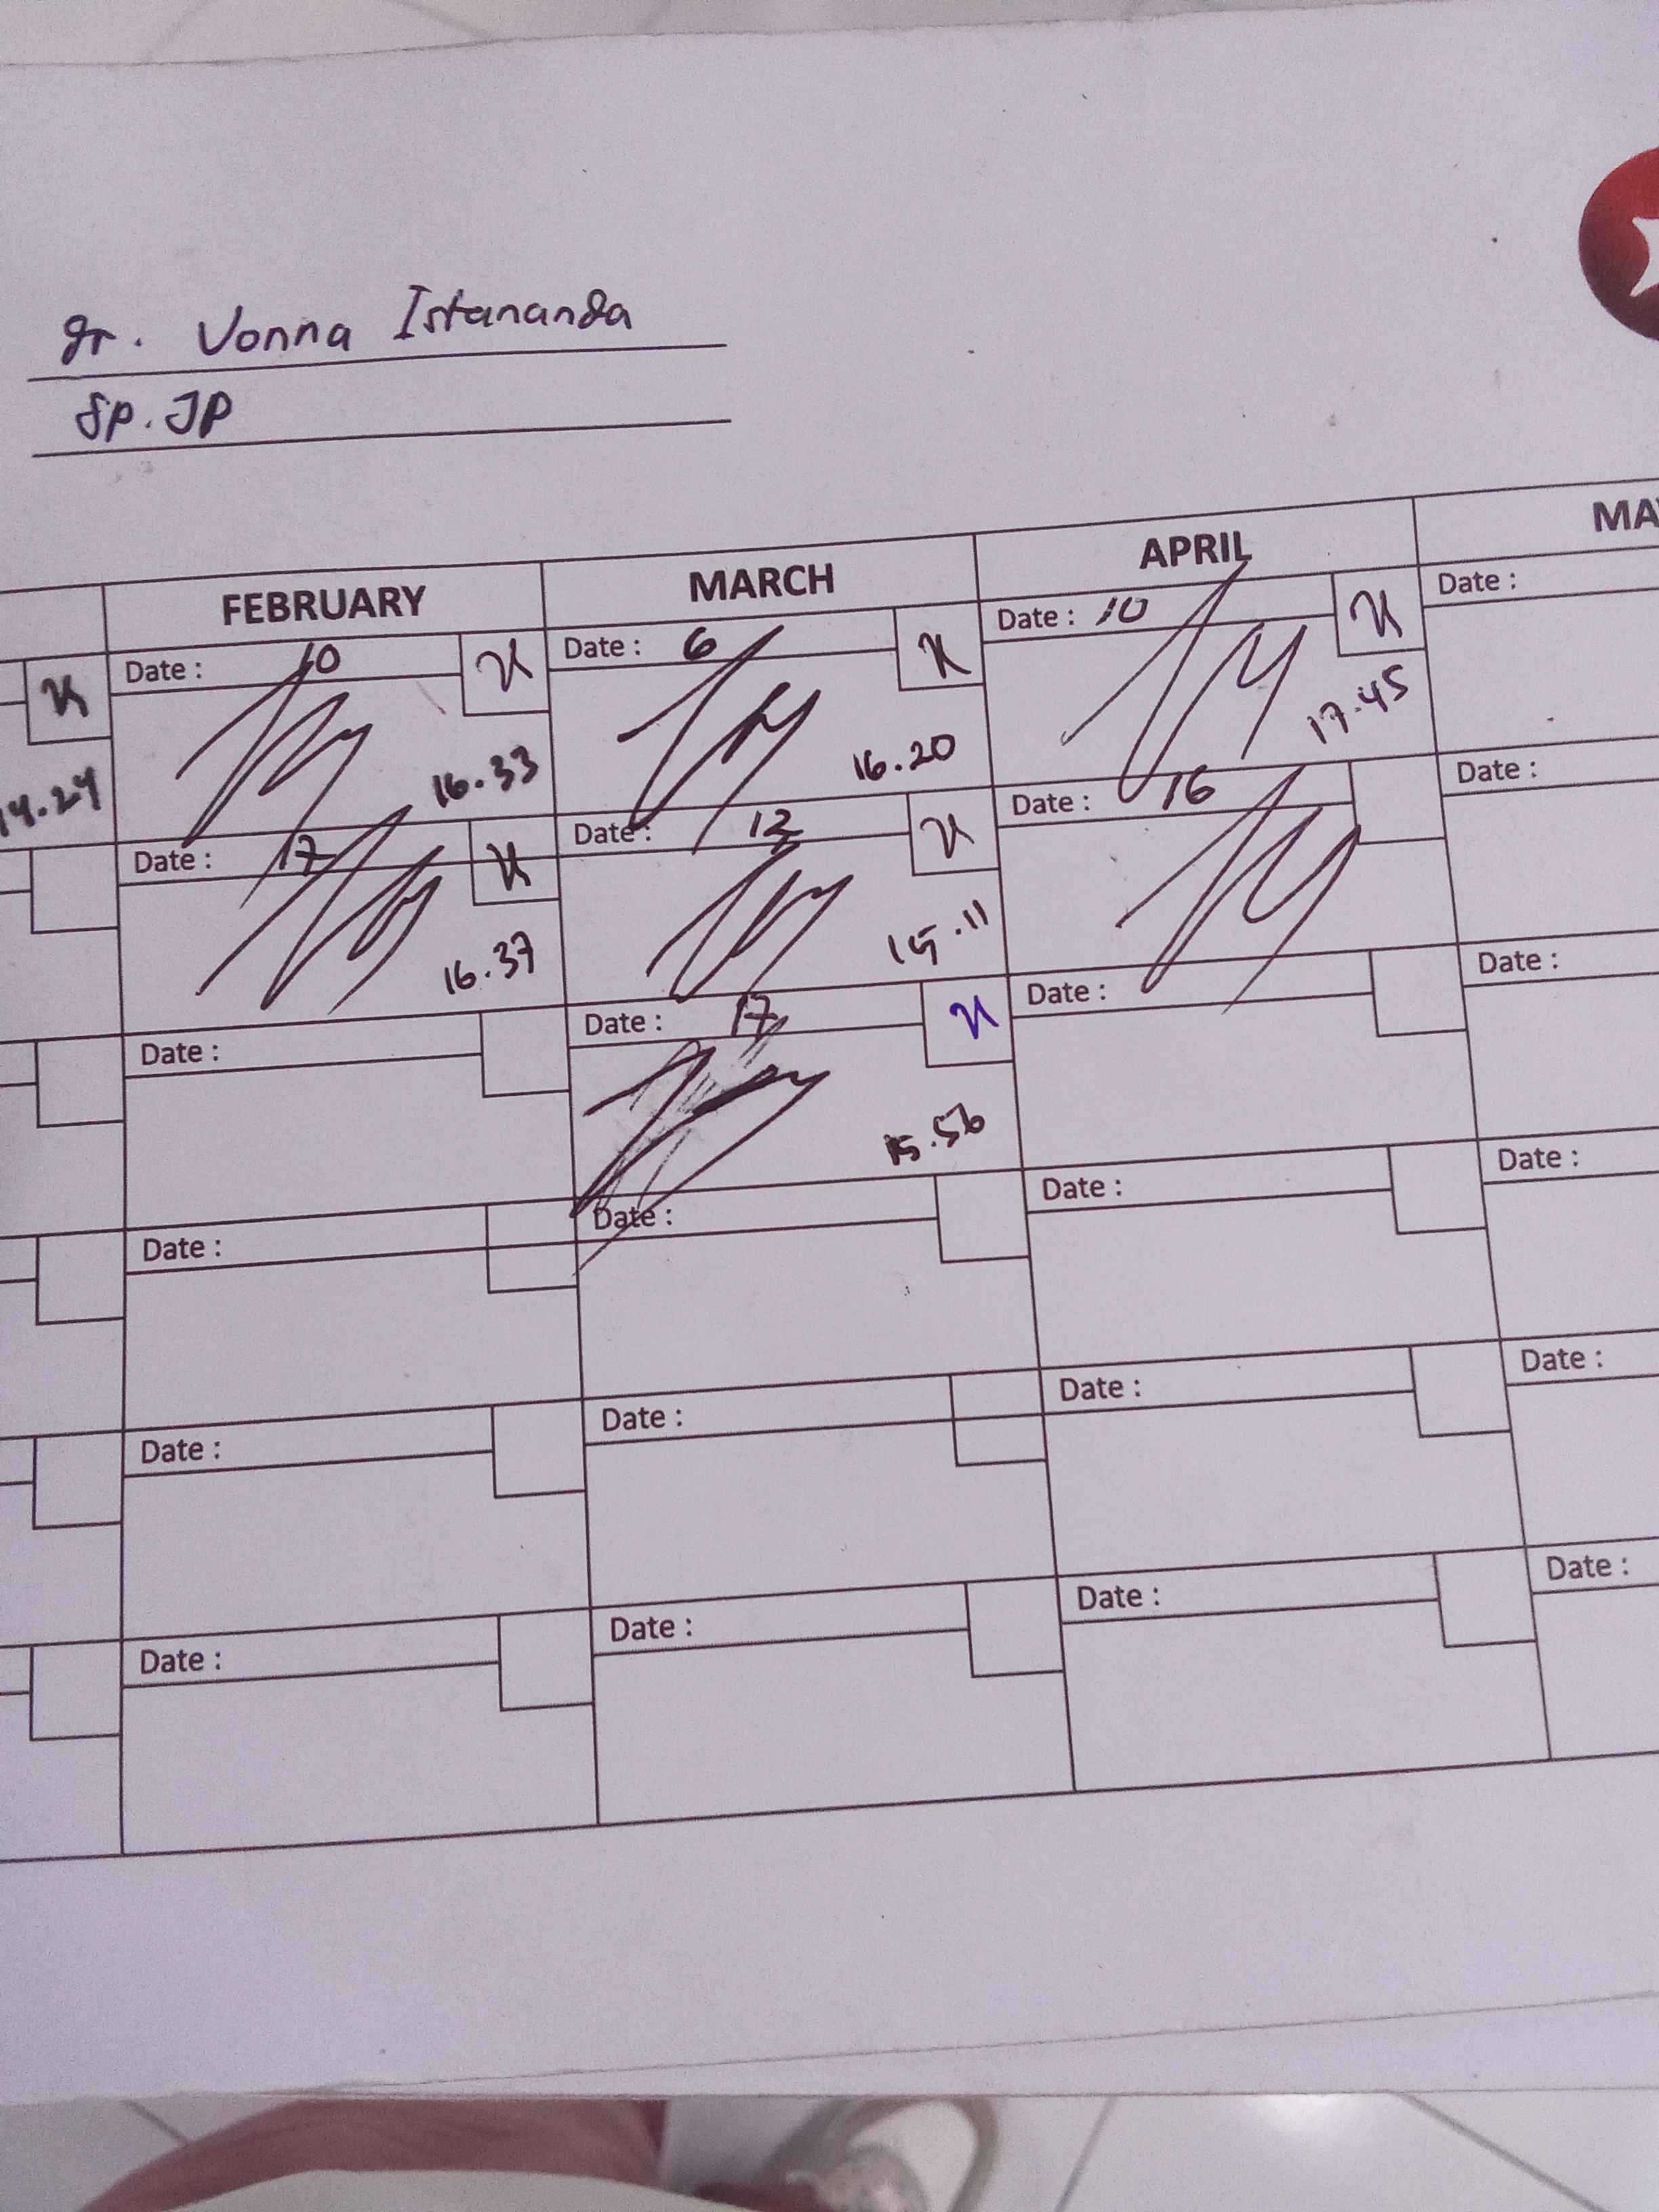 dr. Vonna Istananda
Sp. JP
FEBRUARY MARCH APRIL
Date : 10 Date : 6 Date : 10 Date :
14.24 16.33 16.20 17.45
Date : 17 Date : 12 Date : 16 Date :
16.37 15.11
Date : Date : 17 Date : Date :
15.56
Date : Date : Date : Date :
Date : Date : Date : Date :
Date : Date : Date : Date :